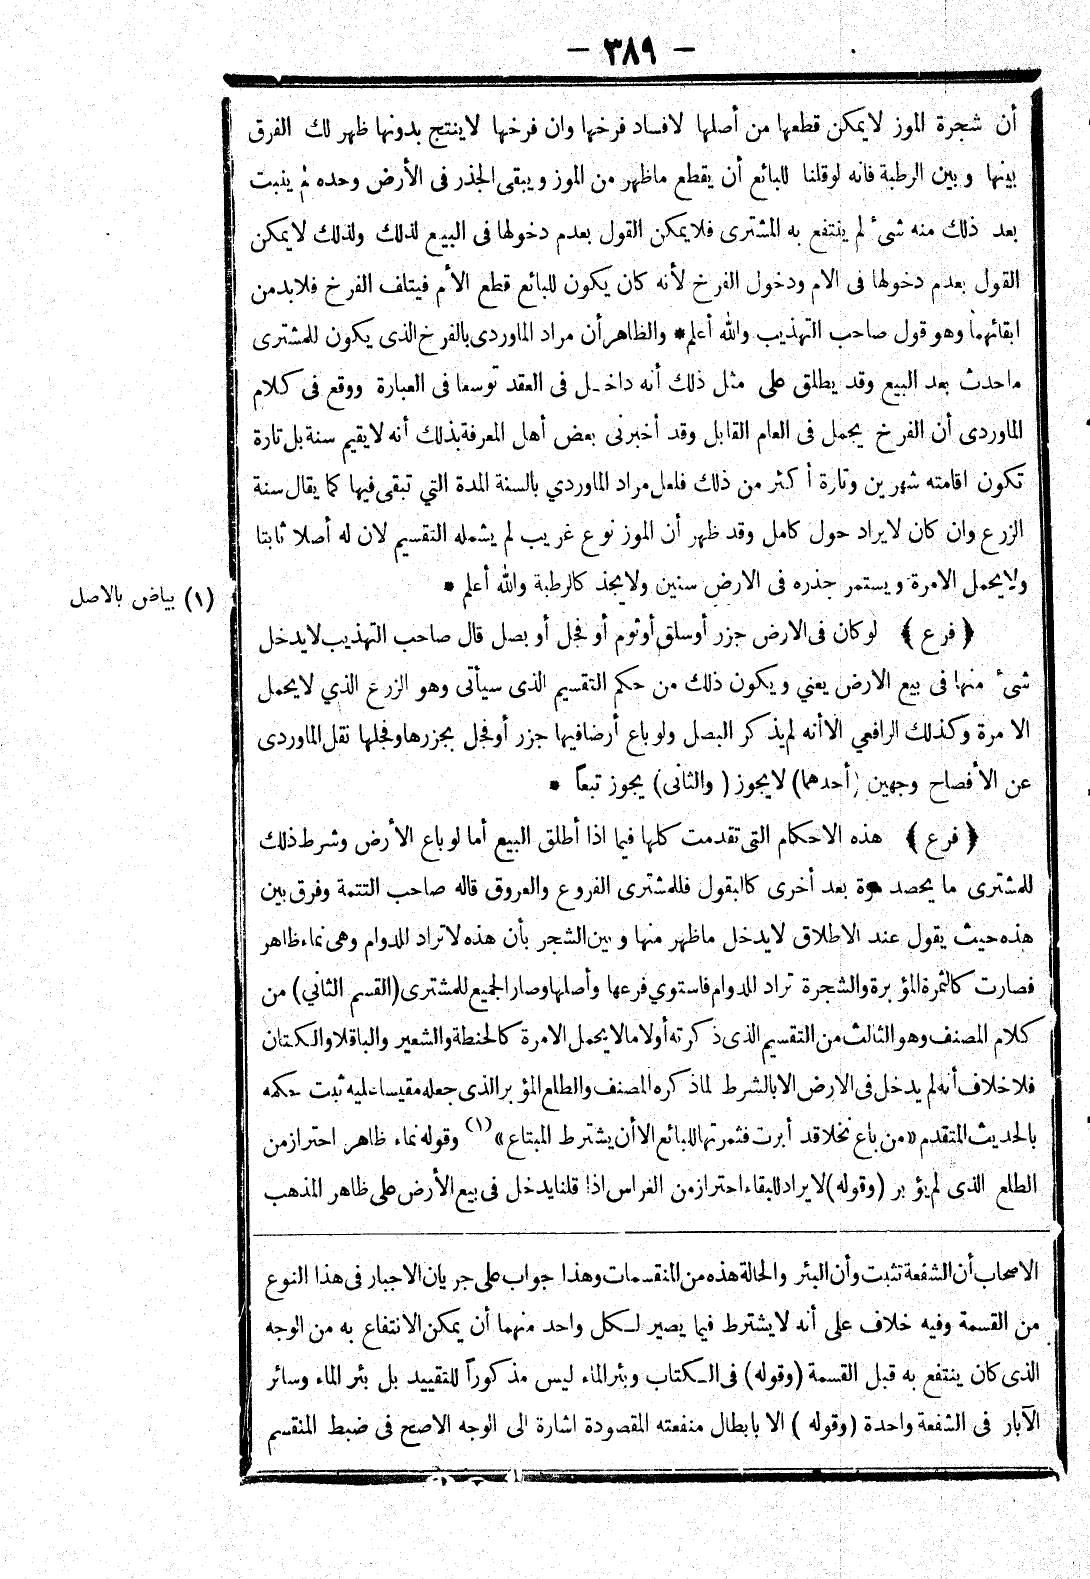 — ٣٨٩ —
أن شجرة الموز لايمكن قطعها من أصلها لافساد فرخها وان فرخها لاينتج بدونها ظهر لك الفرق
بينها وبين الرطبة فانه لوقلنا للبائع أن يقطع ماظهر من الموز ويبقى الجذر فى الأرض وحده ثم ينبت
بعد ذلك منه شىء لم ينتفع به المشترى فلايمكن القول بعدم دخولها فى البيع لذلك ولذلك لايمكن
القول بعدم دخولها فى الام ودخول الفرخ لأنه كان يكون للبائع قطع الأم فيتلف الفرخ فلابد من
ابقائهما وهو قول صاحب التهذيب والله أعلم* والظاهر أن مراد الماوردى بالفرخ الذى يكون للمشترى
ماحدث بعد البيع وقد يطلق على مثل ذلك أنه داخل فى العقد توسعا فى العبارة ووقع فى كلام
الماوردى أن الفرخ يحمل فى العام القابل وقد أخبرنى بعض أهل المعرفة بذلك أنه لايقيم سنة بل تارة
تكون اقامته شهرين وتارة أكثر من ذلك فلعل مراد الماوردي بالسنة المدة التي تبقى فيها كما يقال سنة
الزرع وان كان لايراد حول كامل وقد ظهر أن الموز نوع غريب لم يشمله التقسيم لان له أصلا ثابتا
ولايحمل الامرة ويستمر جذره فى الارض سنين ولايجذ كالرطبة والله أعلم *
(١) بياض بالاصل
﴿ فرع ﴾ لوكان فى الارض جزر أوسلق أوثوم أو فجل أو بصل قال صاحب التهذيب لايدخل
شىء منها فى بيع الارض يعني ويكون ذلك من حكم التقسيم الذى سيأتى وهو الزرع الذي لايحمل
الا مرة وكذلك الرافعي الاأنه لم يذكر البصل ولو باع أرضا فيها جزر أو فجل بجزرها وفجلها نقل الماوردى
عن الأفصاح وجهين (أحدهما) لايجوز (والثانى) يجوز تبعاً *
﴿ فرع ﴾ هذه الاحكام التى تقدمت كلها فيما اذا أطلق البيع أما لو باع الأرض وشرط ذلك
للمشترى ما يحصد مرة بعد أخرى كالبقول فللمشترى الفروع والعروق قاله صاحب التتمة وفرق بين
هذه حيث يقول عند الاطلاق لايدخل ماظهر منها وبين الشجر بأن هذه لاتراد للدوام وهى نماء ظاهر
فصارت كالثمرة المؤبرة والشجرة تراد للدوام فاستوي فرعها وأصلها وصار الجميع للمشترى (القسم الثاني) من
كلام المصنف وهو الثالث من التقسيم الذى ذكرته أولا مالايحمل الامرة كالحنطة والشعير والباقلا والكتان
فلاخلاف أنه لم يدخل فى الارض الابالشرط لماذكره المصنف والطلع المؤبر الذى جعله مقيسا عليه ثبت حكمه
بالحديث المتقدم «من باع نخلا قد أبرت فثمرتها للبائع الاأن يشترط المبتاع» (١) وقوله نماء ظاهر احتراز من
الطلع الذى لم يؤبر (وقوله) لايراد للبقاء احتراز من الغراس اذا قلنا يدخل فى بيع الأرض على ظاهر المذهب
الاصحاب أن الشفعة تثبت وأن البئر والحالة هذه من المنقسمات وهذا جواب على جريان الاجبار فى هذا النوع
من القسمة وفيه خلاف على أنه لايشترط فيما يصير لكل واحد منهما أن يمكن الانتفاع به من الوجه
الذى كان ينتفع به قبل القسمة (وقوله) فى الكتاب وبئر الماء ليس مذكوراً للتقييد بل بئر الماء وسائر
الآبار فى الشفعة واحدة (وقوله) الا بابطال منفعته المقصودة اشارة الى الوجه الاصح فى ضبط المنقسم